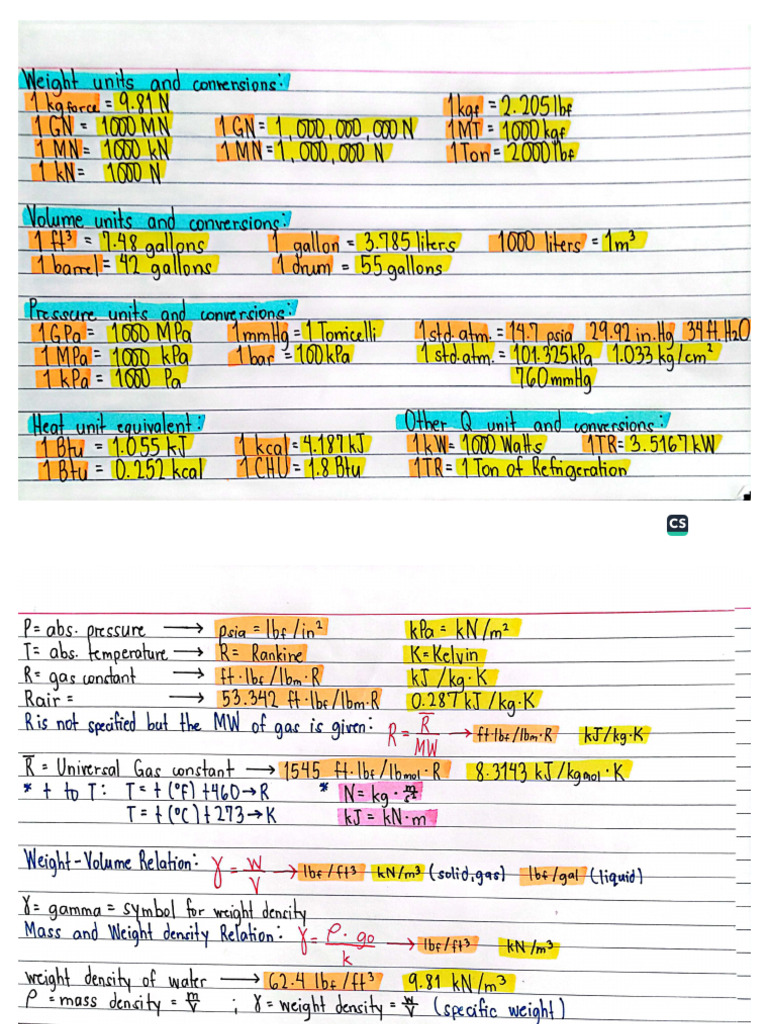 Weight units and conversions:
1 kg force = 9.81 N 1 kgf = 2.205 lbf
1 GN = 1000 MN 1 GN = 1,000,000,000 N 1 MT = 1000 kgf
1 MN = 1000 kN 1 MN = 1,000,000 N 1 Ton = 2000 lbf
1 kN = 1000 N
Volume units and conversions:
1 ft³ = 7.48 gallons 1 gallon = 3.785 liters 1000 liters = 1m³
1 barrel = 42 gallons 1 drum = 55 gallons
Pressure units and conversions:
1 GPa = 1000 MPa 1 mmHg = 1 Torricelli 1 std. atm. = 14.7 psia 29.92 in.Hg 34 ft. H₂O
1 MPa = 1000 kPa 1 bar = 100 kPa 1 std. atm. = 101.325 kPa 1.033 kg/cm²
1 kPa = 1000 Pa 760 mmHg
Heat unit equivalent: Other Q unit and conversions:
1 Btu = 1.055 kJ 1 kcal = 4.187 kJ 1 kW = 1000 Watts 1TR = 3.5167 kW
1 Btu = 0.252 kcal 1 CHU = 1.8 Btu 1TR = 1 Ton of Refrigeration
CS
P = abs. pressure → psia = lbf/in² kPa = kN/m²
T = abs. temperature → R = Rankine K = Kelvin
R = gas constant → ft·lbf/lbm·R kJ/kg·K
Rair = → 53.342 ft·lbf/lbm·R 0.287 kJ/kg·K
R is not specified but the MW of gas is given: R = R̅/MW → ft·lbf/lbm·R kJ/kg·K
R̅ = Universal Gas constant → 1545 ft·lbf/lbmol·R 8.3143 kJ/kgmol·K
* t to T: T = t(°F) + 460 → R * N = kg·m/s²
T = t(°C) + 273 → K kJ = kN·m
Weight-Volume Relation: γ = W/V → lbf/ft³ kN/m³ (solid, gas) lbf/gal (liquid)
γ = gamma = symbol for weight density
Mass and Weight density Relation: γ = ρ·go/k → lbf/ft³ kN/m³
weight density of water → 62.4 lbf/ft³ 9.81 kN/m³
ρ = mass density = m/V ; γ = weight density = W/V (specific weight)